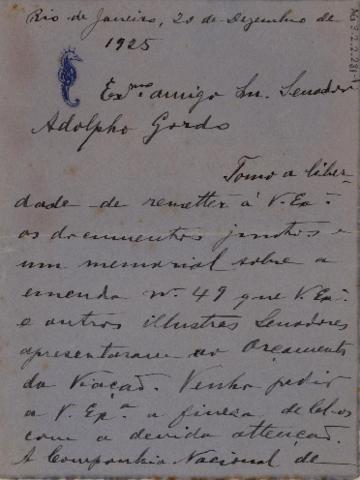 Rio de Janeiro, 23 de Dezembro de
1925
Exmo amigo Sr. Senador
Adolpho Gordo
Tomo a liber-
dade de remetter á V. Exª
os documentos juntos e
um memorial sobre a
emenda nº 49 que V. Exª
e outros illustres Senadores
apresentaram ao Orçamento
da Viação. Venho pedir
a V. Expª a fineza de lel-os
com a devida attenção.
A Companhia Nacional de